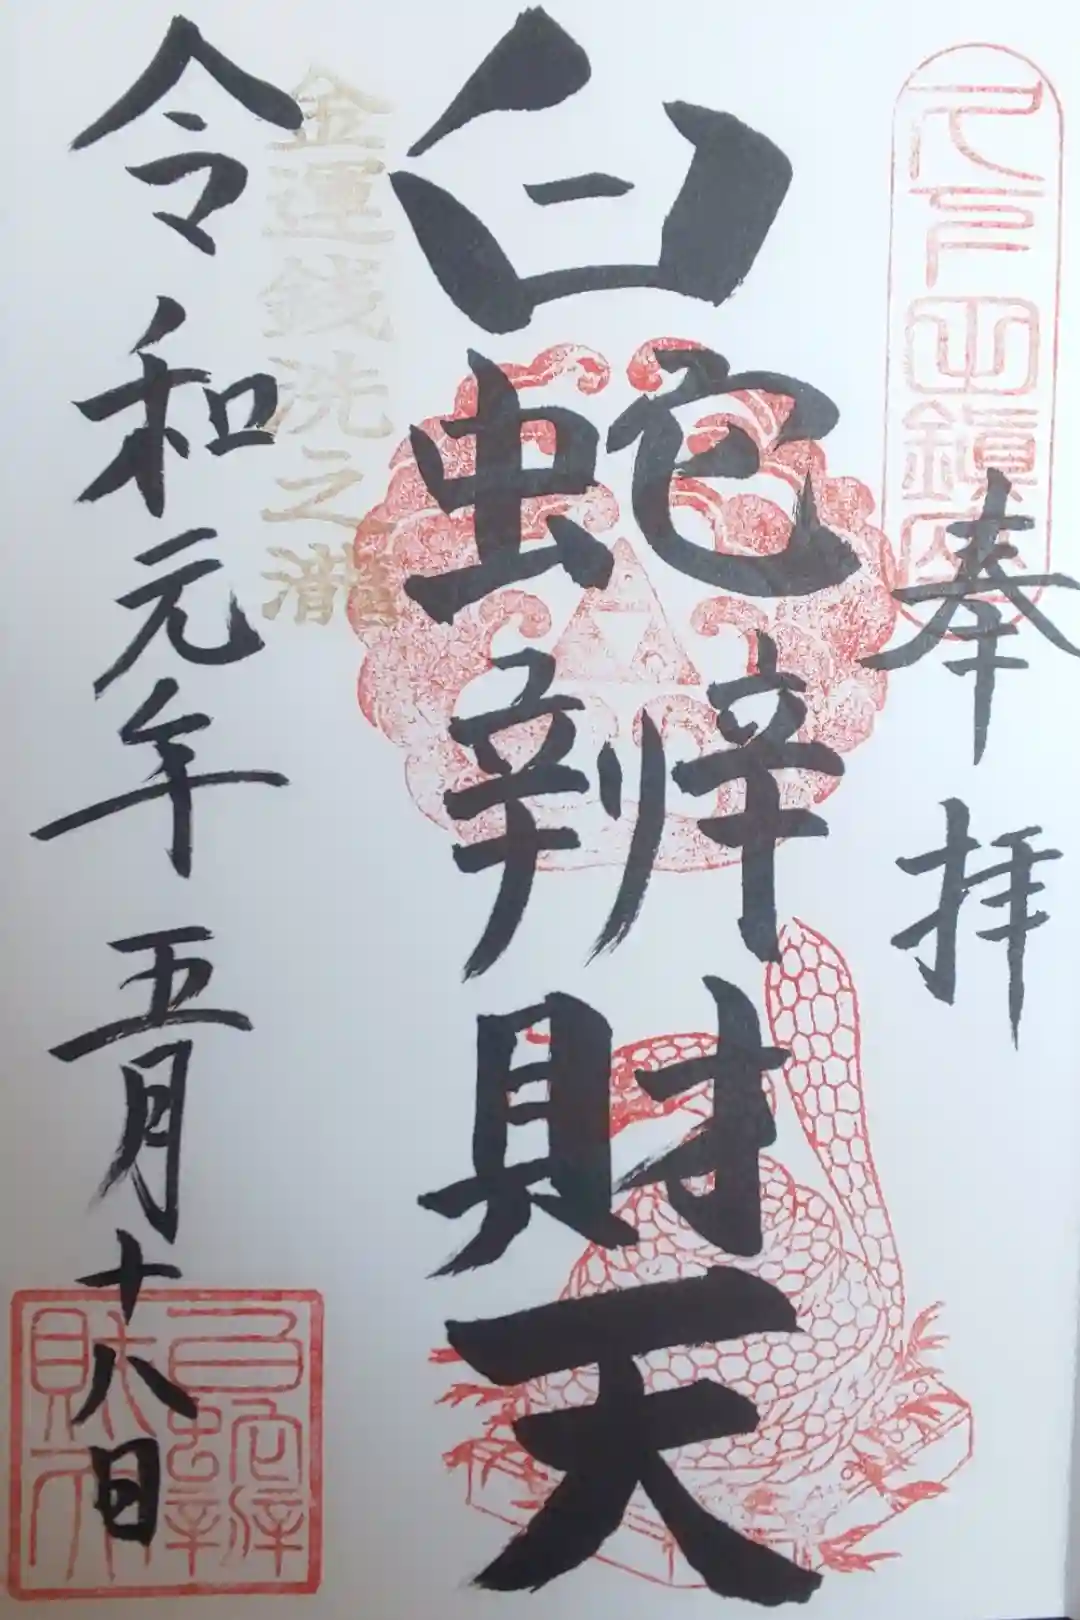 奉拝
白蛇辨財天
金運銭洗之瀧
令和元年五月十八日
白蛇辨
財天